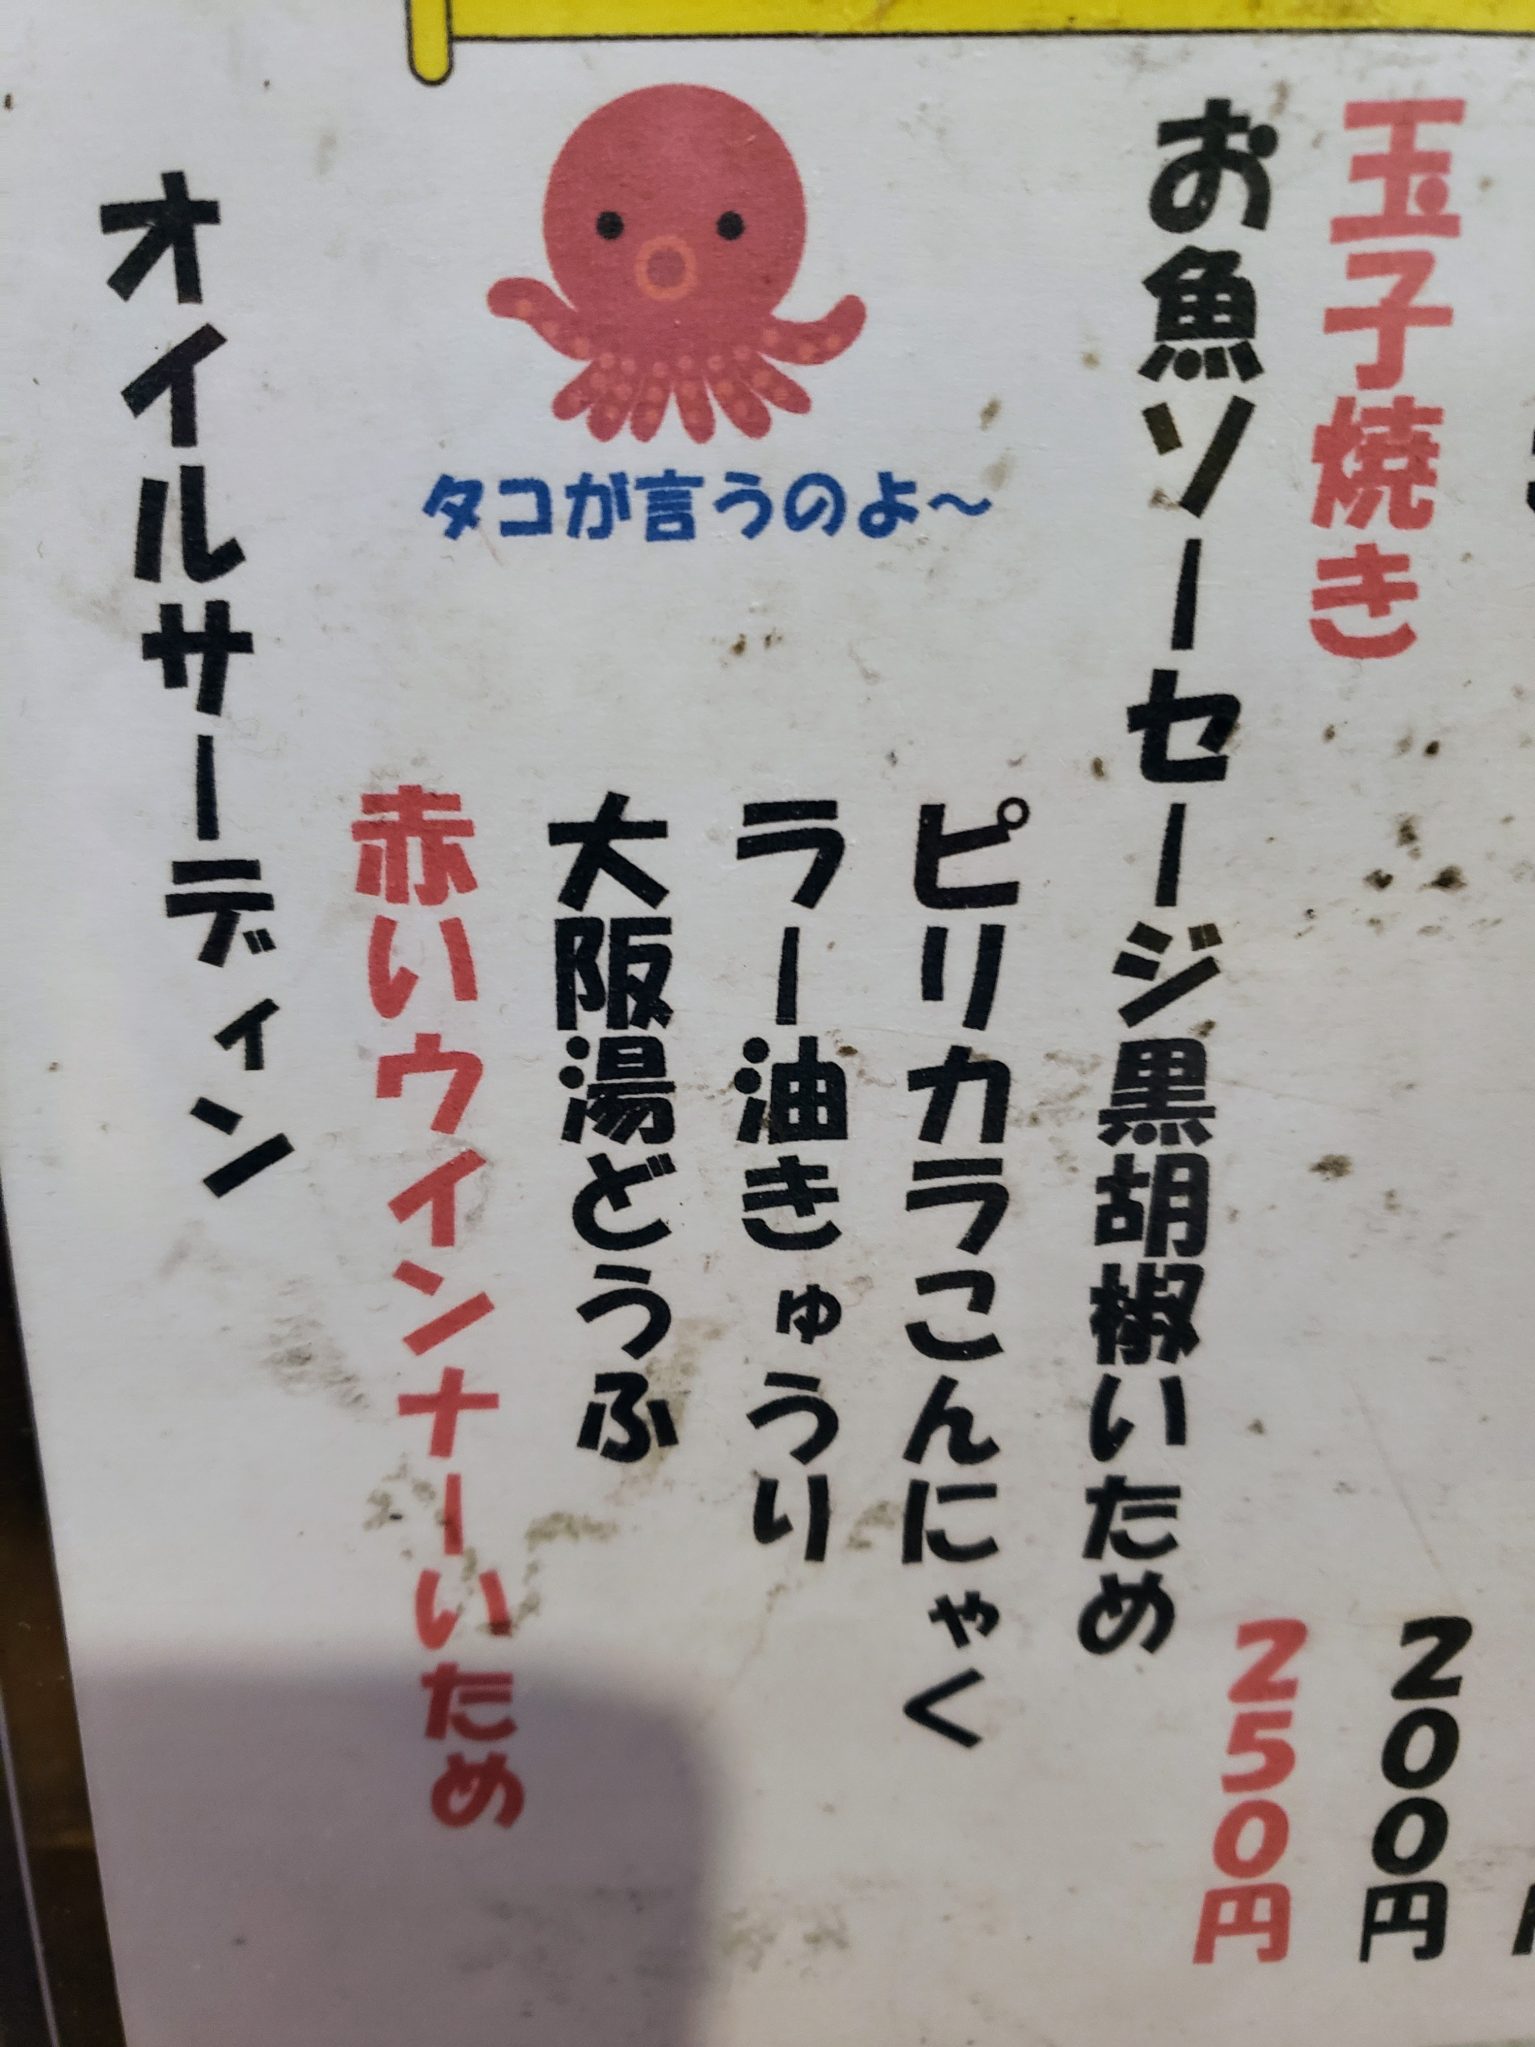 200円
玉子焼き 250円
お魚ソーセージ黒胡椒いため
ピリカラこんにゃく
ラー油きゅうり
大阪湯どうふ
赤いウインナーいため
タコが言うのよ～
オイルサーディン